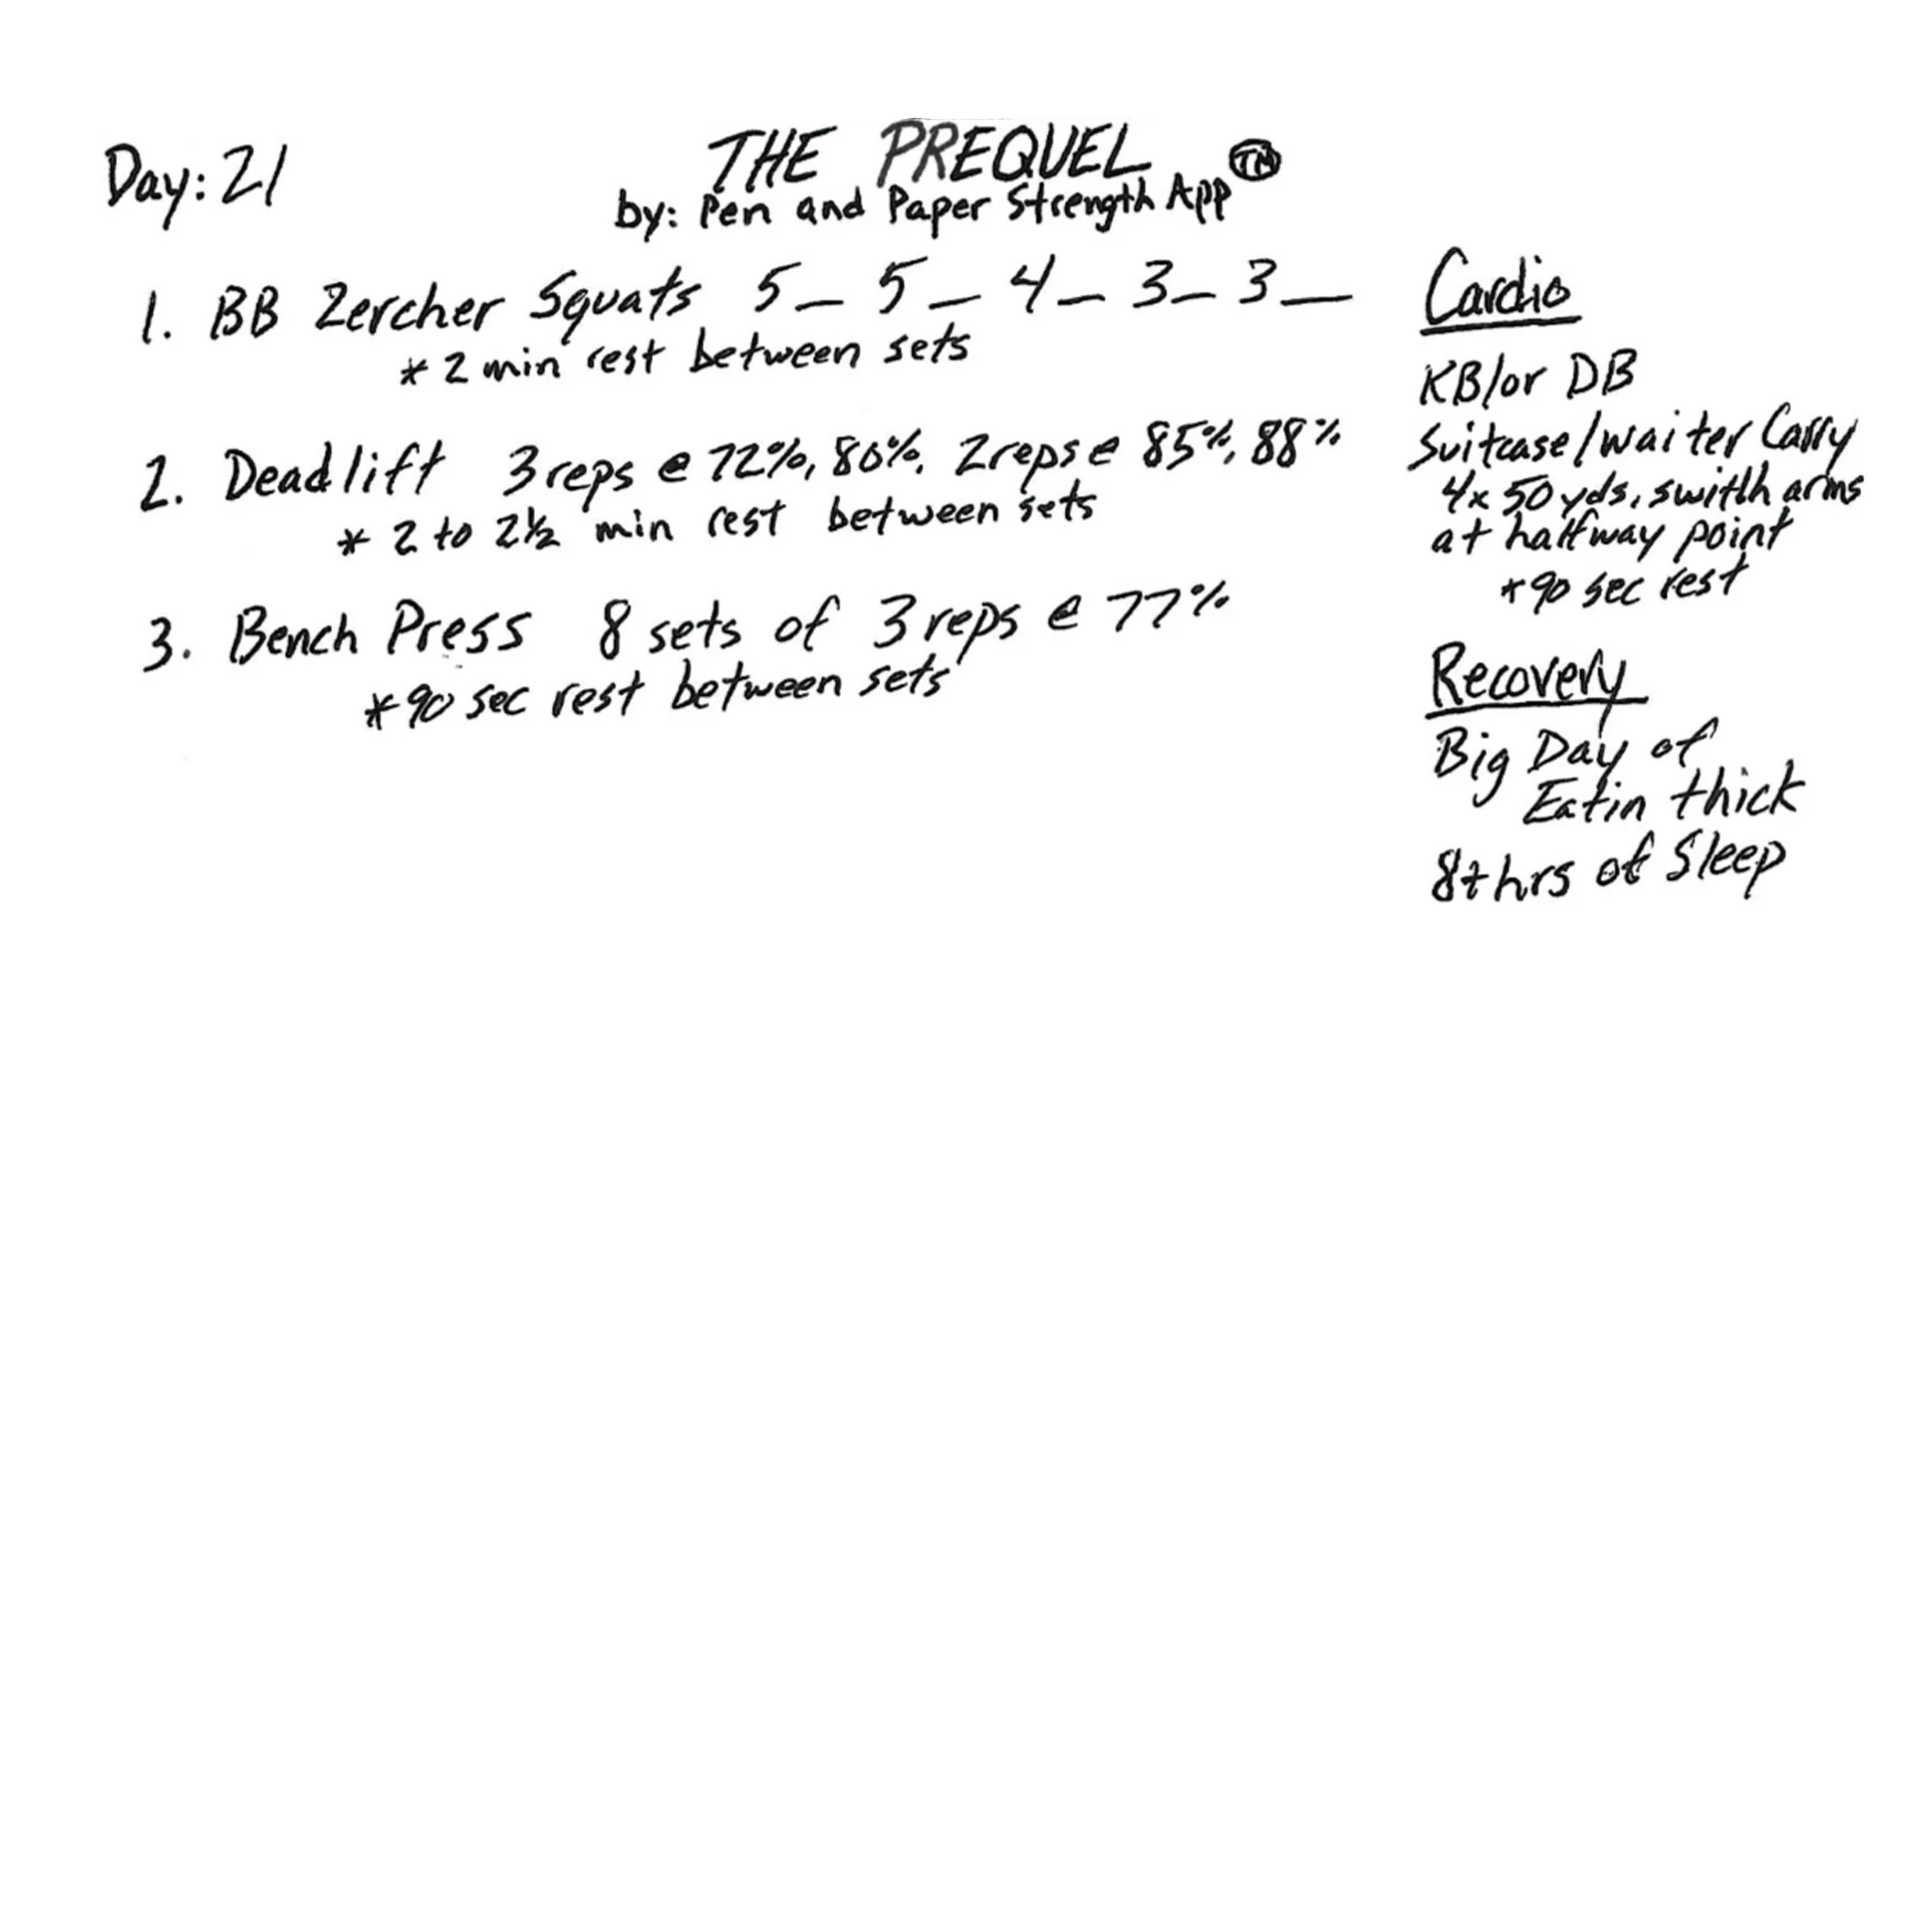 Day: 21
THE PREQUEL TM
by: Pen and Paper Strength App
1. BB Zercher Squats 5_ 5_ 4_ 3_ 3_
* 2 min rest between sets
2. Deadlift 3 reps @ 72%, 80%, 2 reps @ 85%, 88%
* 2 to 2½ min rest between sets
3. Bench Press 8 sets of 3 reps @ 77%
* 90 sec rest between sets
Cardio
KB/or DB
Suitcase/waiter Carry
4x 50 yds, switch arms
at halfway point
* 90 sec rest
Recovery
Big Day of
Eatin thick
8+ hrs of Sleep